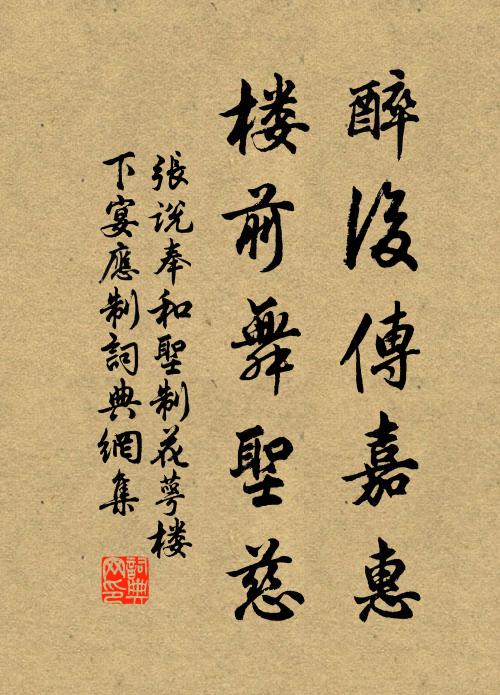 醉後傳嘉惠
楼前舞聖慈
張说奉和聖制花萼楼
下宴應制詞典網集
詞典
网印